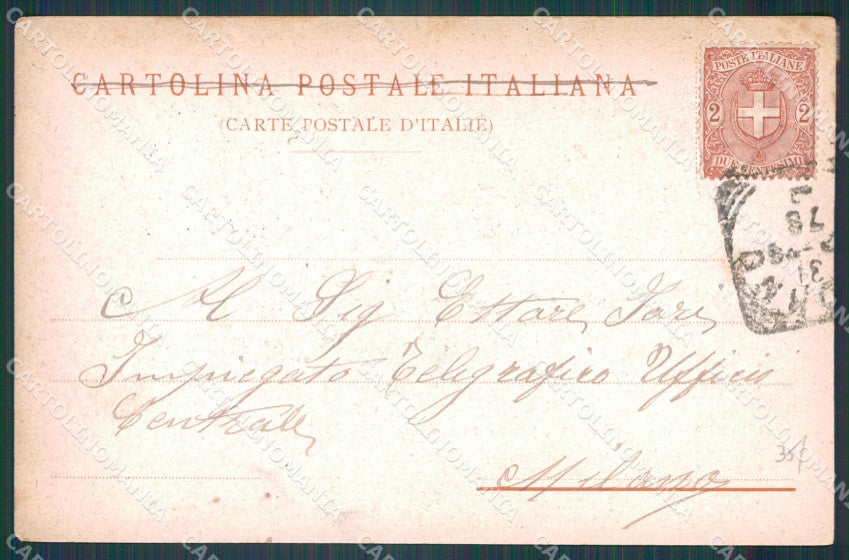 CARTOLINA POSTALE ITALIANA
(CARTE POSTALE D'ITALIE)
POSTE ITALIANE
2 2
DUE CENTESIMI
Al Sig Ettore
Impiegato Telegrafico Ufficio
Centrale
Milano
35
CARTOLINOMANIA